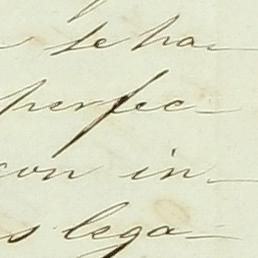 se ha-
perfec-
con in-
s lega-